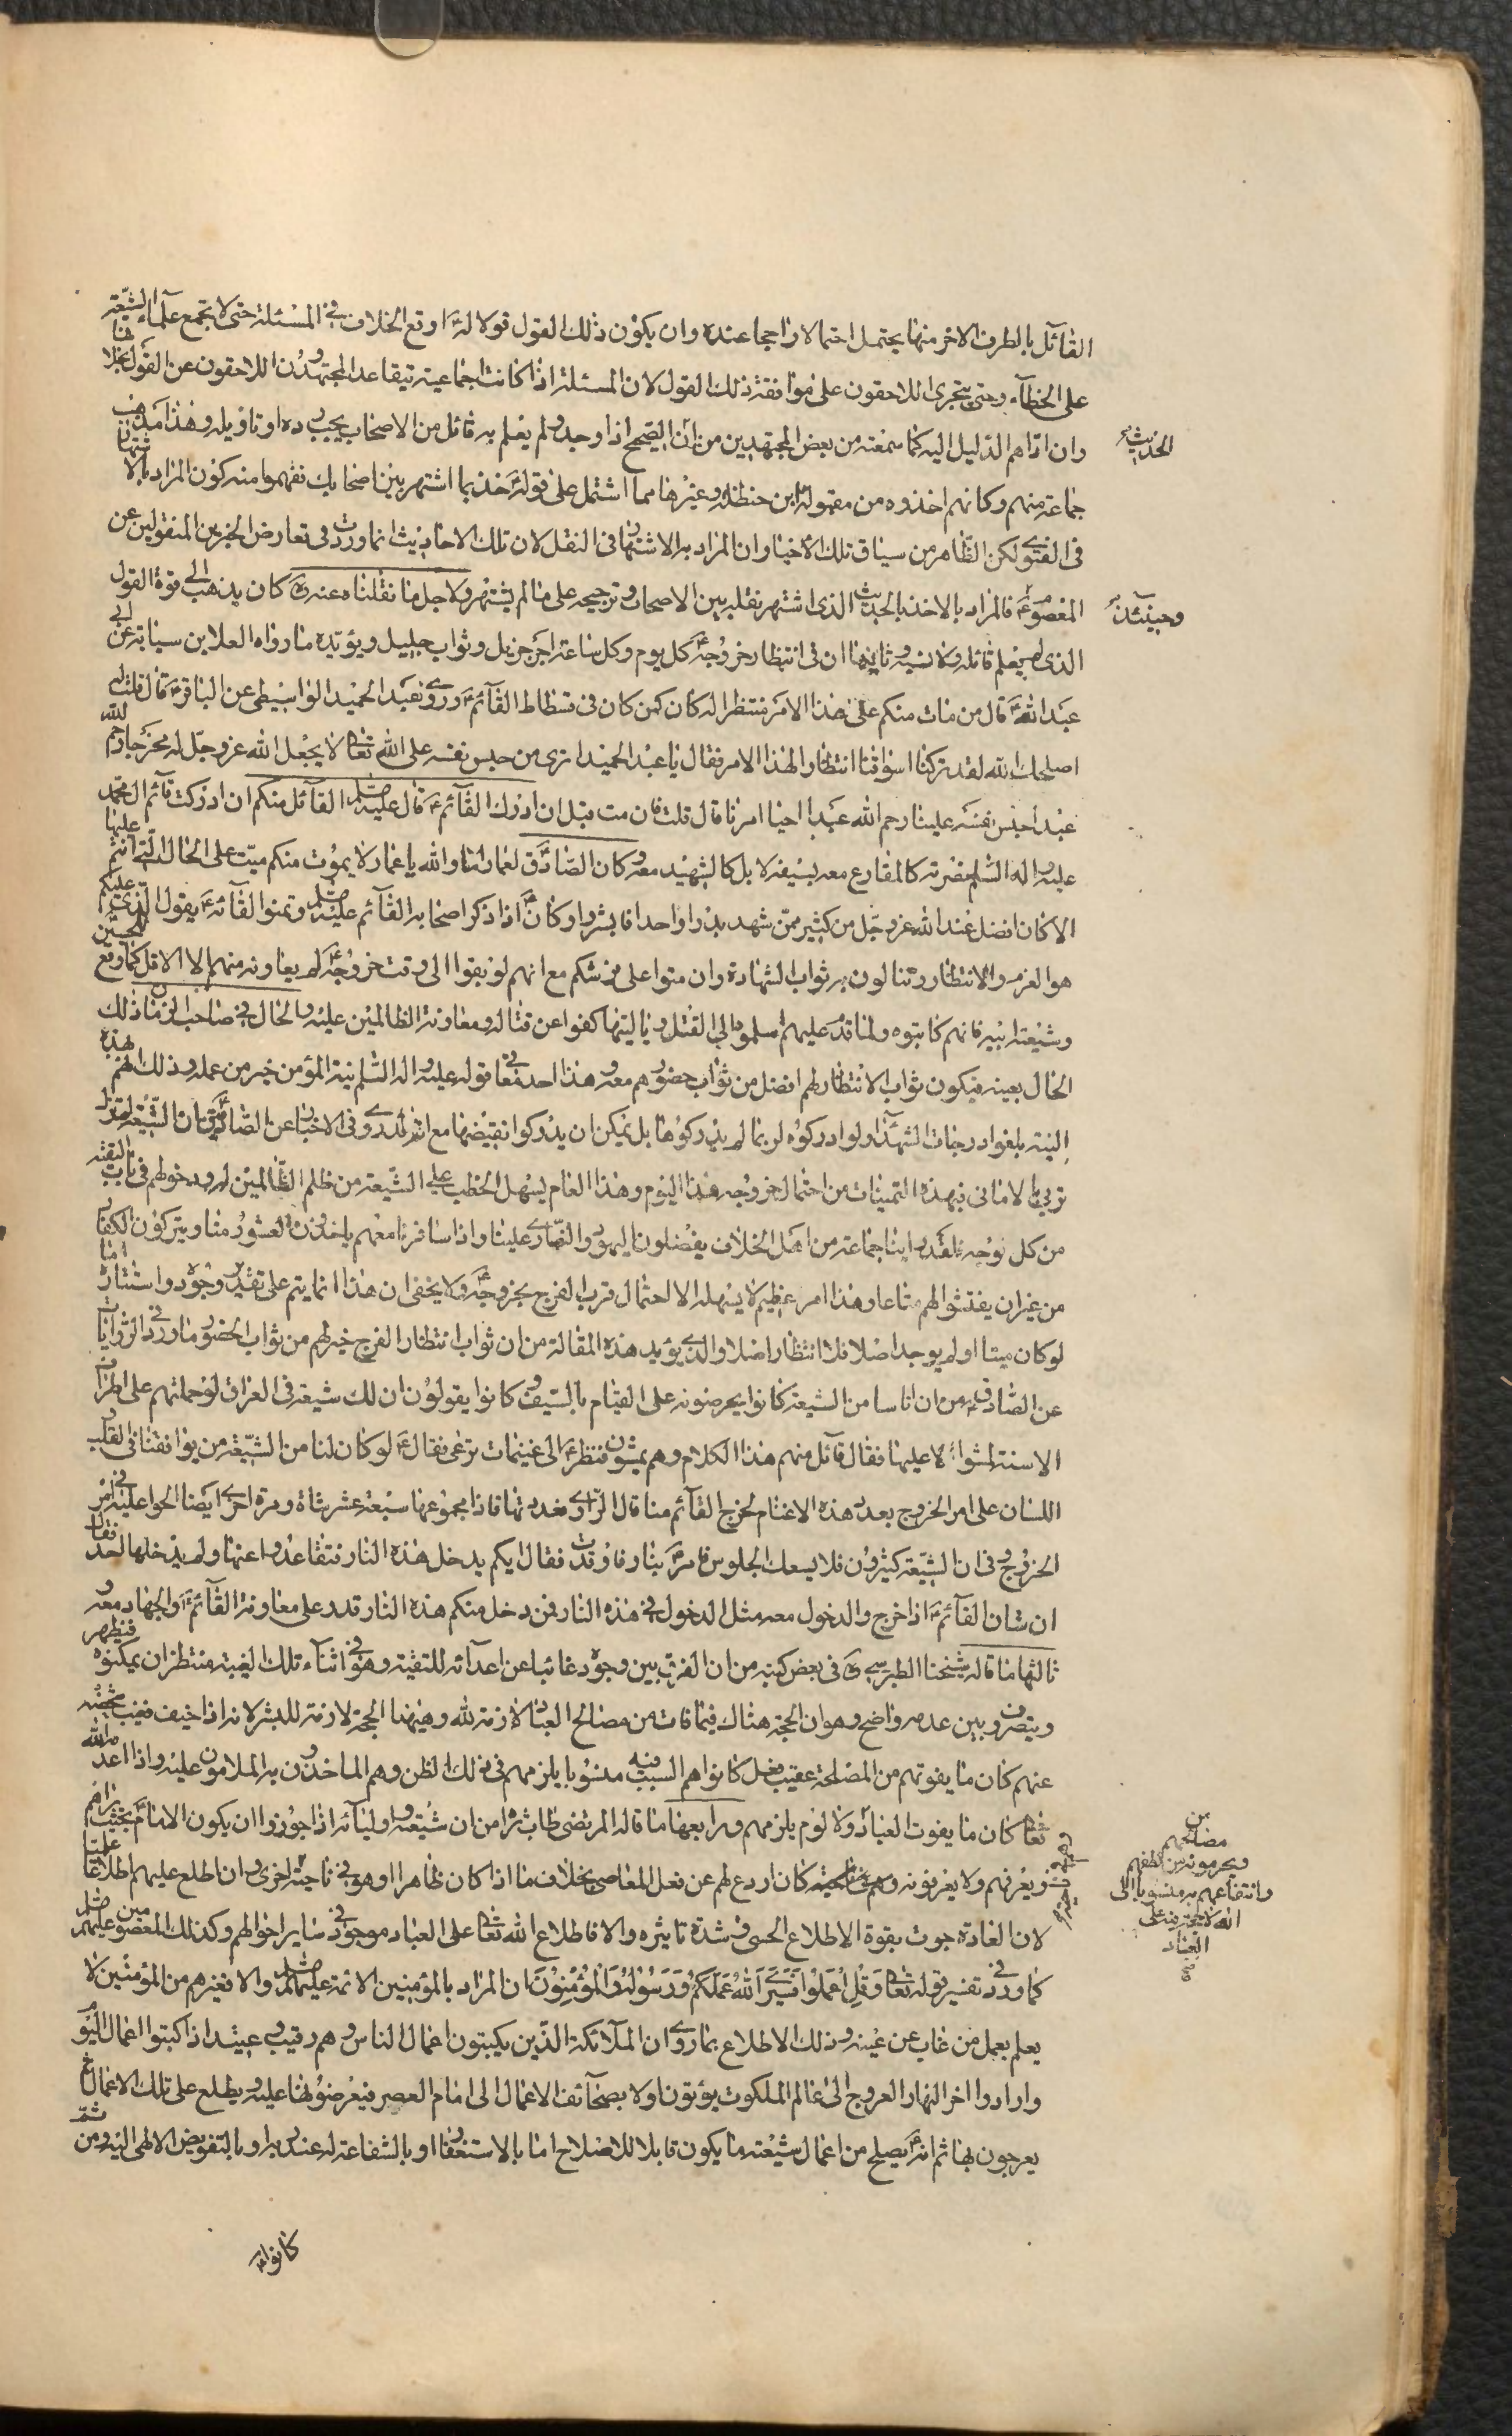 القائل بالطرف الاخر منها يحتمل احتمالا راجحا عنده وان يكون ذلك القول قولا له ع اوقع الخلاف في المسئلة حتى لا يجتمع علماء الشيعة
على الخطاء وحتى يتجرى اللاحقون على موافقة ذلك القول لان المسئلة اذا كانت اجماعية تيقاعد المجتهدون اللاحقون عن القول بخلافها
وان اداهم الدليل اليه كما سمعته من بعض المجتهدين من ان الحديث الصحيح اذا وجد ولم يعلم به قائل من الاصحاب يجب رده او تاويله وهذا مذهب
جماعة منهم وكانهم اخذوه من مقبولة ابن حنظلة وغيرها مما اشتمل على قوله ع خذ بما اشتهر بين اصحابك تفهموا منه كون المراد بالاشتهار
في الفتوى لكن الظاهر من سياق تلك الاخبار ان المراد به الاشتهار في النقل لان تلك الاحاديث انما وردت في تعارض الخبرين المنقولين عن
المعصوم ع وحينئذ فالمراد بالاخذ بالحديث الذي اشتهر نقله بين الاصحاب وترجيحه على ما لم يشتهر ولاجل ما نقلناه عنه ره كان يذهب الى قوة القول
الذي لم يعلم قائله ولا نسبه وثانيها ان في انتظار خروجه ع كل يوم وكل ساعة اجر جزيل وثواب جليل ويؤيده ما رواه العلا بن سيابة عن ابي
عبد الله ع قال من مات منكم على هذا الامر منتظرا له كان كمن كان في فسطاط القائم ع وروى عبد الحميد الواسطي عن الباقر ع قال قلت له
اصلحك الله لقد تركنا اسواقنا انتظارا لهذا الامر فقال يا عبد الحميد اترى من حبس نفسه على الله تعالى لا يجعل الله عز وجل له مخرجا رحم الله
عبدا حبس نفسه علينا رحم الله عبدا احيا امرنا قال قلت فان مت قبل ان ادرك القائم ع قال عليه السلم القائل منكم ان ادركت قائم ال محمد
عليه واله السلم نصرته كالمقارع معه بسيفه لا بل كالشهيد معه وكان الصادق ع لعمار اما والله يا عمار لا يموت منكم ميت على الحال التي انتم عليها
الا كان افضل عند الله عز وجل من كثير ممن شهد بدرا واحدا فابشروا وكان ع اذا ذكر اصحابه القائم عليه السلم وتمنوا لقائه ع يقول الذي عليكم
هو العزم والانتظار وتنالون به ثواب الشهادة وان متوا على فرشكم مع انهم لو بقوا الى وقت خروجه ع لم يعاونه منهم الا الاقل كما وقع للحسين
وشيعة ابيه فانهم كاتبوه ولما قدم عليهم اسلموه الى القتل ويا ليتها كفوا عن قتاله ومعاونة الظالمين عليه والحال في صاحب الزمان ذلك
الحال بعينه فيكون ثواب الانتظار لهم افضل من ثواب حضورهم معه وهذا احد معاني قوله عليه واله السلم نية المؤمن خير من عمله وذلك انهم بهذه
النية بلغوا درجات الشهداء ولو ادركوه لربما لم يدركوها بل يمكن ان يدركوا نقيضها مع انه قد روى في الاخبار عن الصادق ع ان الشيعة لم تزل
تربى بالاماني فبهذه التمنيات من احتمال خروجه هذا اليوم وهذا العام يسهل الخطب على الشيعة من ظلم الظالمين لهم ودخولهم في باب التقية
من كل وجه فلقد راينا جماعة من اهل الخلاف يفضلون اليهود والنصارى علينا واذا سافرنا معهم ياخذون العشور منا ويتركون الكفار
من غير ان يفتشوا لهم متاعا وهذا امر عظيم لا يسهله الا احتمال قرب الفرج بخروجه ع ولا يخفى ان هذا انما يتم على تقدير وجوده واستتاره اما
لو كان ميتا او لم يوجد اصلا فلا انتظار اصلا والذي يؤيد هذه المقالة من ان ثواب انتظار الفرج خير لهم من ثواب الحضور ما ورد في الروايات
عن الصادق ع من ان اناسا من الشيعة كانوا يحرضونه على القيام بالسيف وكانوا يقولون ان لك شيعة في العراق لو حملتهم على اطراف
الاسنة لمشوا عليها فقال قائل منهم هذا الكلام وهم يمشون فنظر ع الى غنيمات ترعى فقال ع لو كان لنا من الشيعة من يوافقنا في القلب
اللسان على امر الخروج بعدد هذه الاغنام لخرج القائم منا قال الراوي فعددتها فاذا مجموعها سبعة عشر شاة ومرة اخرى ايضا الحوا عليه في امر
الخروج وفي ان الشيعة كثيرون فلا يسعك الجلوس فامر ع بنار فاوقدت فقال ايكم يدخل هذه النار فتقاعدوا عنها ولم يدخلها احد فقال
ان شان القائم ع اذا خرج والدخول معه مثل الدخول في هذه النار فمن دخل منكم هذه النار قدر على معاونة القائم ع والجهاد معه و
ثالثها ما قاله شيخنا الطبرسي ره في بعض كتبه من ان الفرق بين وجوده غائبا عن اعدائه للتقية وهو في اثناء تلك الغيبة منتظر ان يمكنوه فيظهر
ويتصرف وبين عدمه واضح وهو ان الحجة هناك فيما فات من مصالح العباد لازمة لله وهيهنا الحجة لازمة للبشر لانه اذا خيف فغيب شخصه
عنهم كان ما يفوتهم من المصلحة عقيب فعل كانوا هم السبب فيه منسوبا يلزمهم في ذلك الظن وهم الماخذون به الملامون عليه واذا اعدمه الله
تعالى كان ما يفوت العباد ولا لوم يلزمهم ورابعها ما قاله المرتضى طاب ثراه من ان شيعته واوليائه اذا جوزوا ان يكون الامام ع بحيث يراهم
ويعرفهم ولا يعرفونه كان اردع لهم عن فعل المعاصي بخلاف ما اذا كان ظاهرا او هو في ناحية اخرى وان اطلع عليهم اطلاعا علميا
لان العادة جرت بقوة الاطلاع الحسي وشدة تاثيره والا فاطلاع الله تعالى على العباد موجود في ساير احوالهم وكذلك المعصومين عليهم السلم
كما ورد في تفسير قوله تعالى وَقُلِ اعْمَلُوا فَسَيَرَى اللهُ عَمَلَكُمْ وَرَسُولُهُ وَالْمُؤْمِنُونَ ان المراد بالمؤمنين الائمة عليهم السلم والا فغيرهم من المؤمنين لا
يعلم بعمل من غاب عن عينه وذلك الاطلاع بما روى ان الملائكة الذين يكتبون اعمال الناس وهم رقيب وعتيد اذا كتبوا اعمال اليوم
وارادوا اخر النهار العروج الى عالم الملكوت يؤتون اولا بصحائف الاعمال الى امام العصر فيعرضونها عليه ويطلع على تلك الاعمال ثم
يعرجون بها ثم انه ع يصلح من اعمال شيعته ما يكون قابلا للاصلاح اما بالاستغفار او بالشفاعة له عند ربه او بالتفويض الالهي اليه ومن ثم
كانوا
الحديث
وحينئذ
من
مصالحهم
ويحرمونه من لطفهم
وانتفاعهم به منسوبا الى
الله لا حجة فيه على
العباد
صح